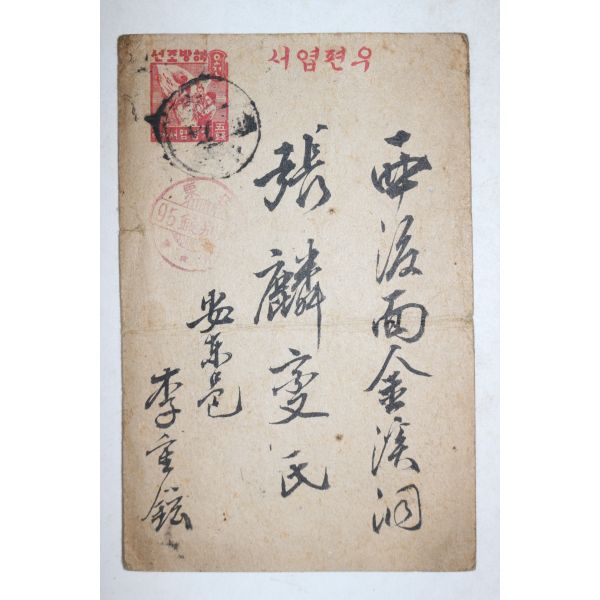 우편엽서
해방조선
西後面金溪洞
張麟燮氏
安東邑
李重